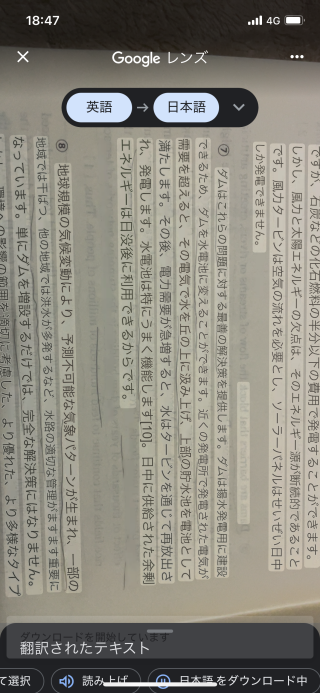 18:47
4G
Google レンズ
英語 → 日本語
ですが、石炭などの化石燃料の半分以下の費用で発電することができます。
しかし、風力と太陽エネルギーの欠点は、そのエネルギー源が断続的であること
です。風力タービンは空気の流れを必要とし、ソーラーパネルはせいぜい日中
しか発電できません。
⑦ ダムはこれらの問題に対する最善の解決策を提供します。ダムは揚水発電用に建設
できるため、ダムを水電池に変えることができます。近くの発電所で発電された電気が
需要を超えると、その電気で水を丘の上に汲み上げ、上部の貯水池を電池として
満たします。その後、電力需要が急増すると、水はタービンを通じて再放出さ
れ、発電します。水電池は特にうまく機能します[10]。日中に供給された余剰
エネルギーは日没後に利用できるからです。
⑧ 地球規模の気候変動により、予測不可能な気象パターンが生まれ、一部の
地域では干ばつ、他の地域では洪水が多発するなど、水路の適切な管理がますます重要に
なっています。単にダムを増設するだけでは、完全な解決策にはなりません。
への影響の範囲を適切に考慮した、より優れた、より多様なタイプ
ダウンロードを開始しています
翻訳されたテキスト
て選択
読み上げ
日本語をダウンロード中